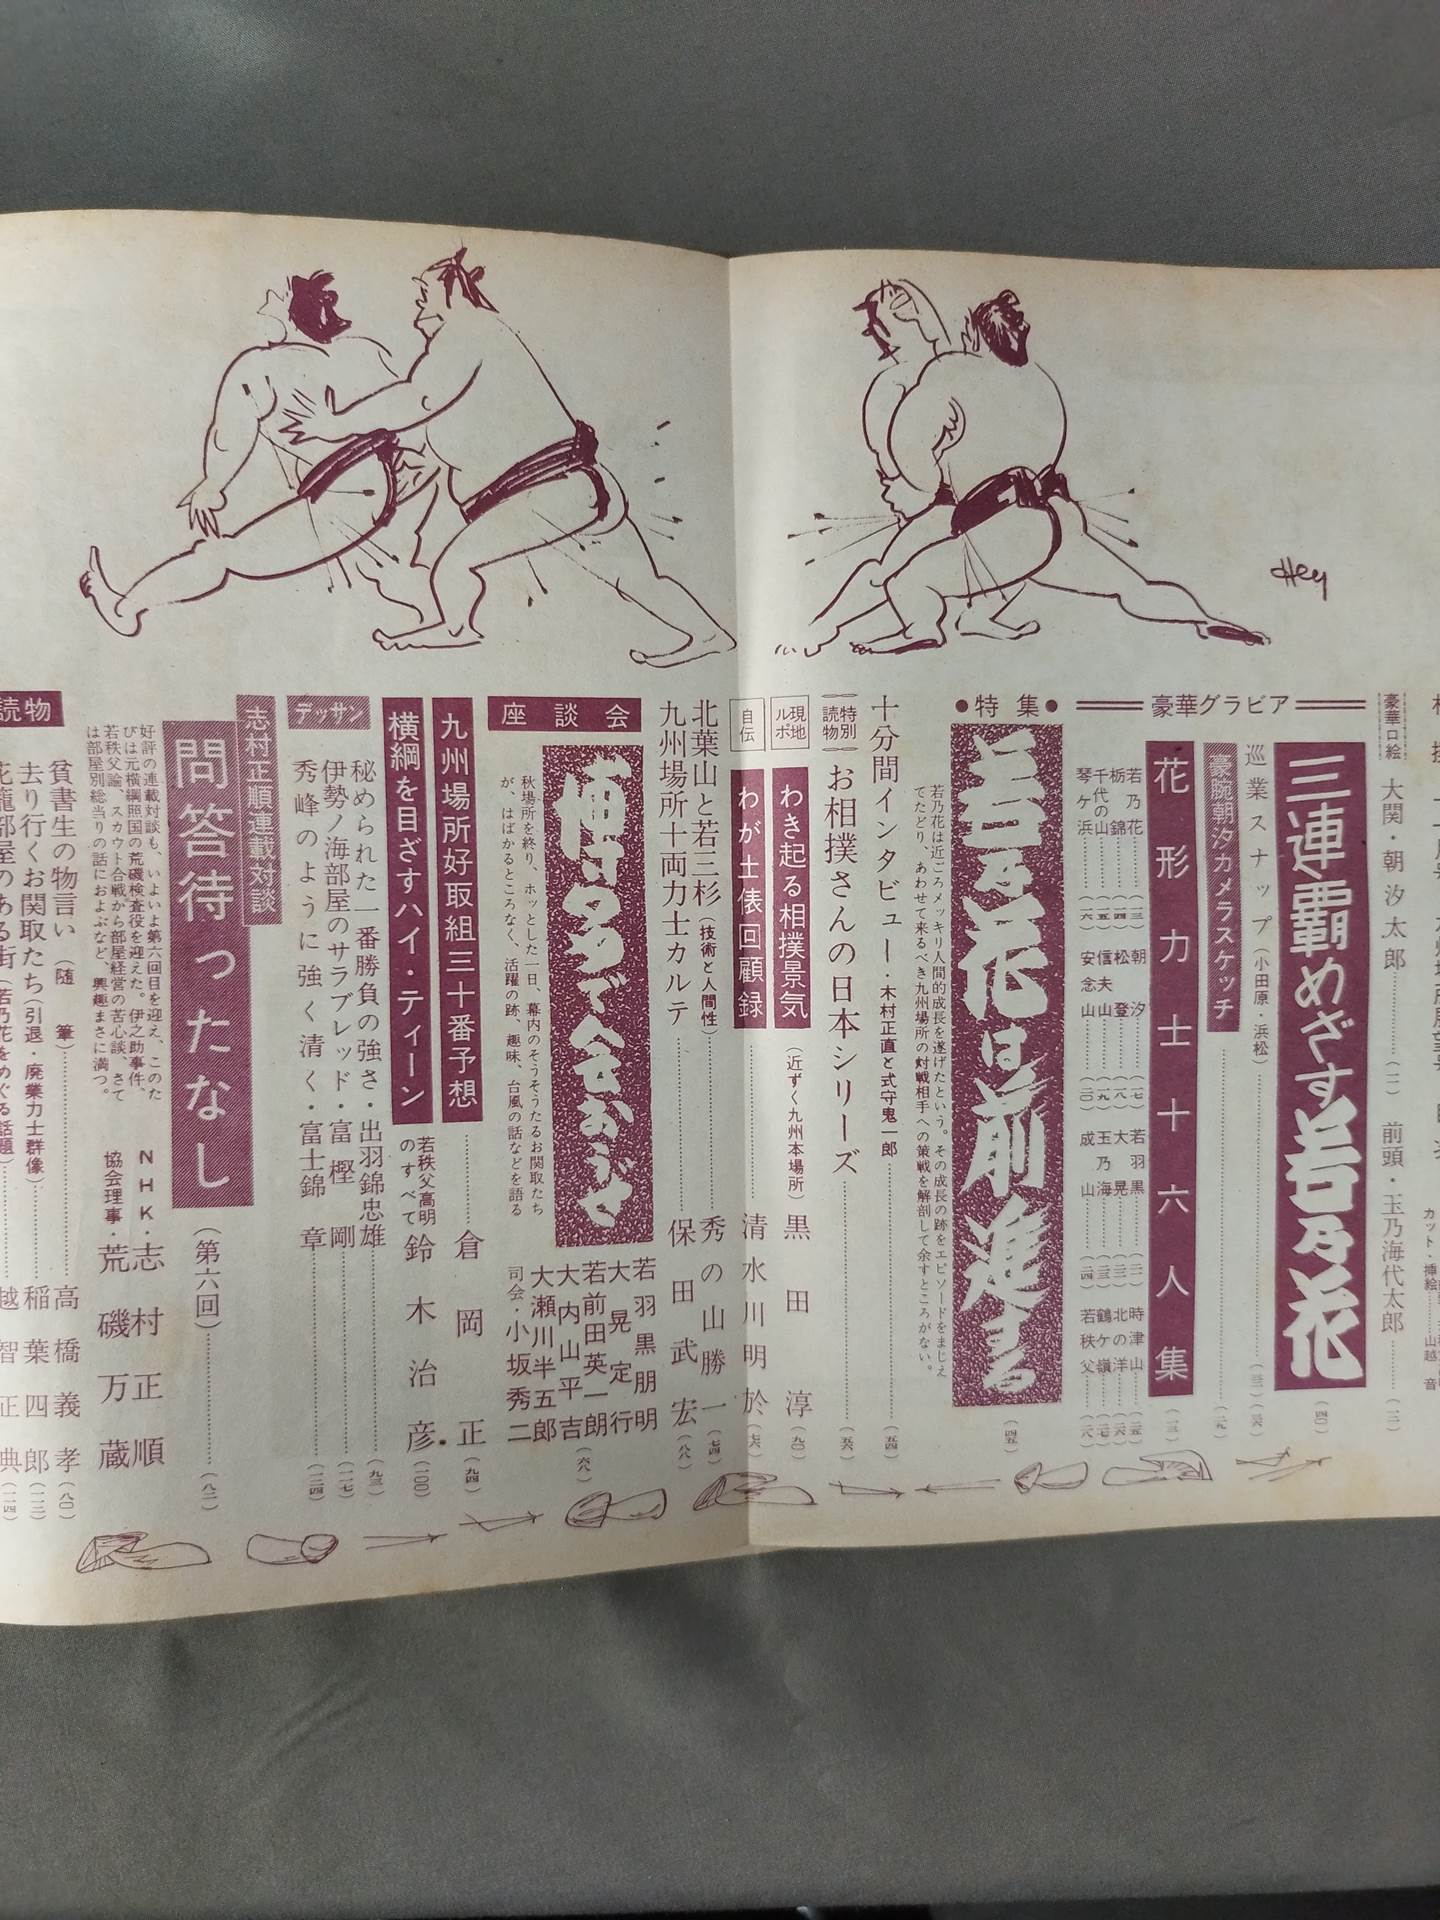 Hey
豪華口絵
大関・朝汐太郎……………(一一)
前頭・玉乃海代太郎………(一二)
カット・挿絵……山越 音
豪華グラビア
三連覇めざす若乃花(四〇)
巡業スナップ(小田原・浜松)……(三六)
豪腕朝汐カメラスケッチ……(二九)
花形力士十六人集(一三)
若乃花……(一三)
栃錦……(一四)
千代の山……(一五)
琴ケ浜……(一六)
朝汐……(一七)
松登……(一八)
信夫山……(一九)
安念山……(二〇)
若羽黒……(二一)
大晃……(二二)
玉乃海……(二三)
成山……(二四)
時津山……(二五)
北の洋……(二六)
鶴ケ嶺……(二七)
若秩父……(二八)
●特集●
若乃花は前進する(四五)
若乃花は近ごろメッキリ人間的成長を遂げたという。その成長の跡をエピソードをまじえ
てたどり、あわせて来るべき九州場所の対戦相手への策戦を解剖して余すところがない。
十分間インタビュー・木村正直と式守鬼一郎……(五四)
特別読物
お相撲さんの日本シリーズ……(五六)
現地ルポ
わき起る相撲景気(近ずく九州本場所)黒田淳(九〇)
自伝
わが土俵回顧録……清水川明於(七六)
北葉山と若三杉(技術と人間性)……秀の山勝一(七四)
九州場所十両力士カルテ……保田武宏(八八)
座談会
備えなで会おうぜ
秋場所を終り、ホッとした一日、幕内のそうそうたるお関取たち
が、はばかるところなく、活躍の跡、趣味、台風の話などを語る
若羽黒朋明
大晃定行
若前田英一朗
大内山平吉
大瀬川半五郎
司会・小坂秀二
(六八)
九州場所好取組三十番予想……倉岡正(九四)
横綱を目ざすハイ・ティーン 若秩父高明のすべて 鈴木治彦(一〇〇)
デッサン
秘められた一番勝負の強さ・出羽錦忠雄……(九三)
伊勢ノ海部屋のサラブレッド・富樫剛……(一一七)
秀峰のように強く清く・富士錦章……(一二四)
志村正順連載対談
問答待ったなし(第六回)……(八二)
好評の連載対談も、いよいよ第六回目を迎え、このた
びは元横綱照国の荒磯検査役を迎えた。伊之助事件、
若秩父論、スカウト合戦から部屋経営の苦心談、さて
は部屋別総当りの話におよぶなど、興趣まさに満つ。
NHK・志村正順
協会理事・荒磯万蔵
読物
貧書生の物言い(随筆)……高橋義孝(八〇)
去り行くお関取たち(引退・廃業力士群像)……稲葉四郎(一一二)
花籠部屋のある街(若乃花をめぐる話題)……越智正典(一一四)